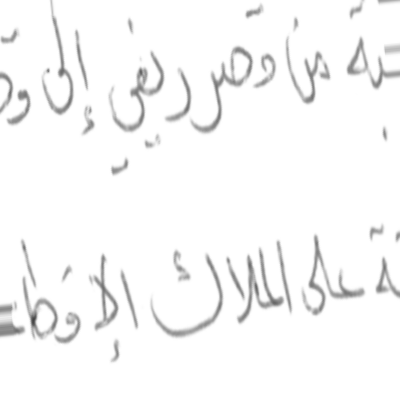 من قصر ريفي إلى
على الملاك الإقطا